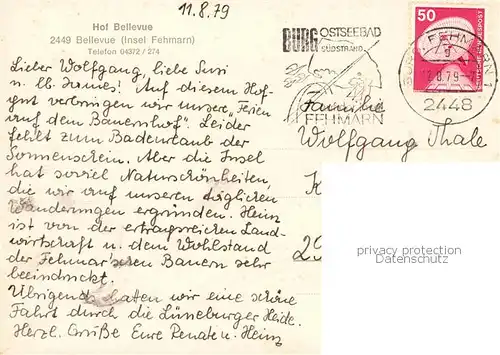 11.8.79
Hof Bellevue
2449 Bellevue (Insel Fehmarn)
Telefon 04372 / 274
Lieber Wolfgang, liebe Susi
u. lb. Auf diesem Hof-
gut verbringen wir unsere „Ferien
auf dem Bauernhof". Leider
fehlt zum Badeurlaub der
Sonnenschein. Aber die Insel
hat soviel Naturschönheiten,
die wir auf unseren täglichen
Wanderungen ergründen. Heinz
ist von der ertragreichen Land-
wirtschaft u. dem Wohlstand
der Fehmar'schen Bauern sehr
beeindruckt.
Übrigens hatten wir eine schöne
Fahrt durch die Lüneburger Heide.
Herzl. Grüße Eure Renate u. Heinz
BURG OSTSEEBAD
SÜDSTRAND
FEHMARN
50
DEUTSCHE BUNDESPOST
FEHMARN 1
12.8.79
2448
Familie
Wolfgang Thale
privacy protection
Datenschutz